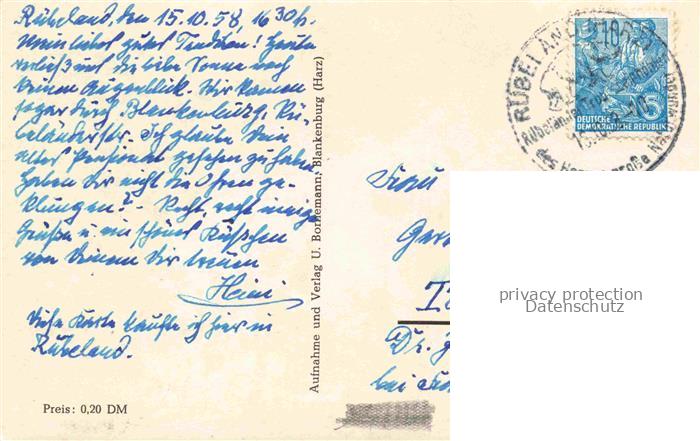 Rübeland, den 15.10.58, 16 30 h.
Mein liebes gutes Trudchen! Heute
verließ uns die liebe Sonne noch
keinen Augenblick. Wir kamen
sogar durch Blankenburg, Rü-
beländerstr. Ich glaube Dein
altes Pensionat gesehen zu haben
Haben Dir nicht die Ohren ge-
klungen? - Recht, recht innige
Grüße u. ein schönes Küßchen
von Deinem Dir treuen
Heini
Diese Karte kaufte ich hier in
Rübeland.
Preis: 0,20 DM
Aufnahme und Verlag U. Bornemann, Blankenburg (Harz)
RÜBELAND
Rübeländer Tropfsteinhöhlen
15.10.58-10
DEUTSCHE
DEMOKRATISCHE REPUBLIK
Frau
Dr.
bei
privacy protection
Datenschutz